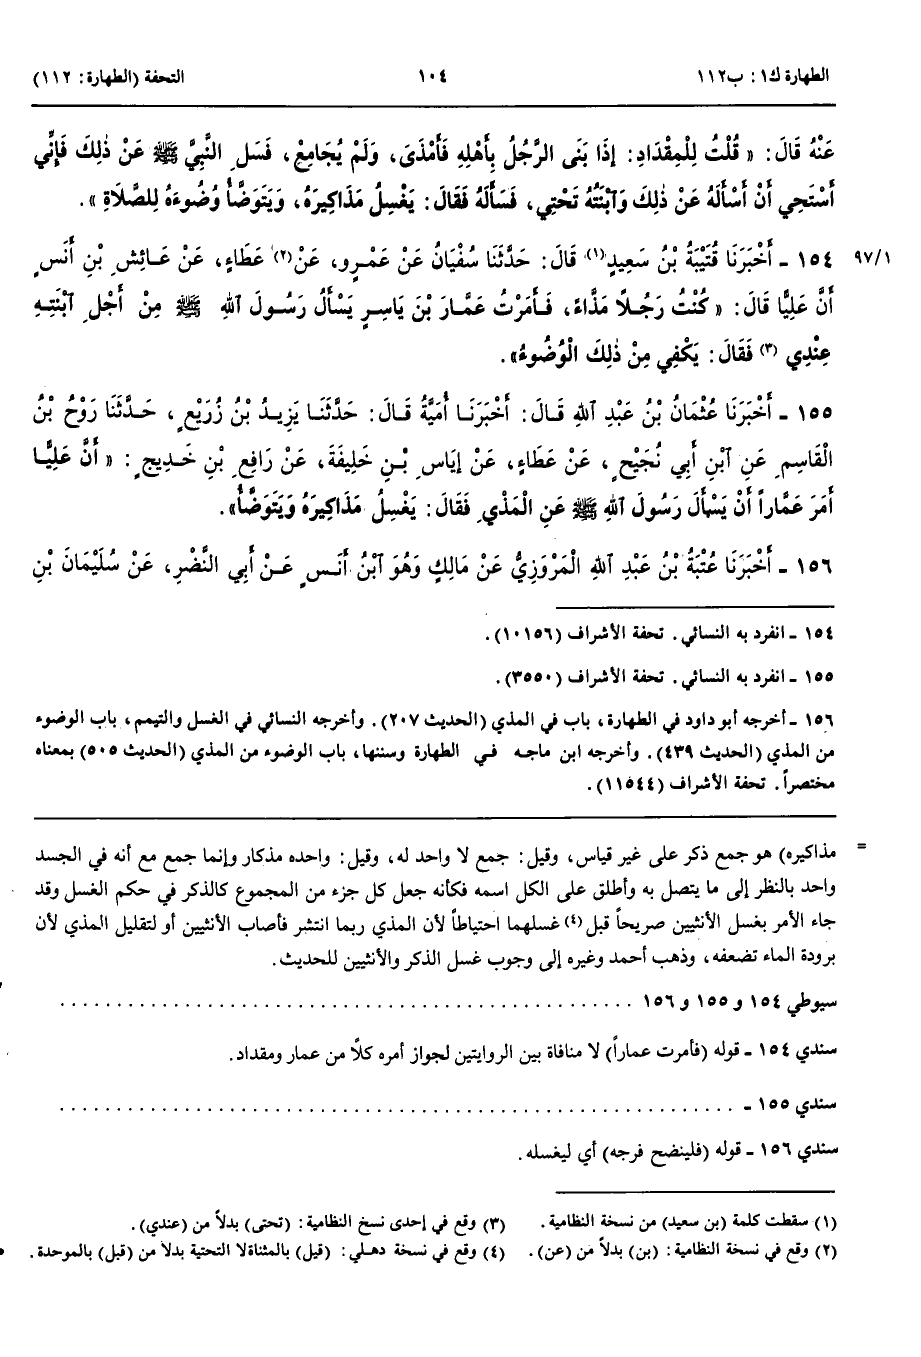 الطهارة ك١: ب١١٢
١٠٤
التحفة (الطهارة: ١١٢)
عَنْهُ قَالَ: « قُلْتُ لِلْمِقْدَادِ: إذَا بَنَى الرَّجُلُ بِأَهْلِهِ فَأَمْذَى، وَلَمْ يُجَامِعْ، فَسَلِ النَّبِيَّ ﷺ عَنْ ذٰلِكَ فَإِنِّي
أَسْتَحِي أَنْ أَسْأَلَهُ عَنْ ذٰلِكَ وَٱبْنَتُهُ تَحْتِي، فَسَأَلَهُ فَقَالَ: يَغْسِلُ مَذَاكِيرَهُ، وَيَتَوَضَّأُ وُضُوءَهُ لِلصَّلَاةِ ».
٩٧/١
١٥٤ ـ أَخْبَرَنَا قُتَيْبَةُ بْنُ سَعِيدٍ(١) قَالَ: حَدَّثَنَا سُفْيَانُ عَنْ عَمْرٍو، عَنْ(٢) عَطَاءٍ، عَنْ عَائِشِ بْنِ أَنَسٍ
أَنَّ عَلِيًّا قَالَ: « كُنْتُ رَجُلاً مَذَّاءً، فَأَمَرْتُ عَمَّارَ بْنَ يَاسِرٍ يَسْأَلُ رَسُولَ ٱللهِ ﷺ مِنْ أَجْلِ ٱبْنَتِهِ
عِنْدِي (٣) فَقَالَ: يَكْفِي مِنْ ذٰلِكَ الْوُضُوءُ».
١٥٥ ـ أَخْبَرَنَا عُثْمَانُ بْنُ عَبْدِ ٱللهِ قَالَ: أَخْبَرَنَا أُمَيَّةُ قَالَ: حَدَّثَنَا يَزِيدُ بْنُ زُرَيْعٍ، حَدَّثَنَا رَوْحُ بْنُ
الْقَاسِمِ عَنِ ٱبْنِ أَبِي نُجَيْحٍ، عَنْ عَطَاءٍ، عَنْ إيَاسِ بْنِ خَلِيفَةَ، عَنْ رَافِعِ بْنِ خَدِيجٍ: « أَنَّ عَلِيًّا
أَمَرَ عَمَّاراً أَنْ يَسْأَلَ رَسُولَ ٱللهِ ﷺ عَنِ الْمَذْيِ فَقَالَ: يَغْسِلُ مَذَاكِيرَهُ وَيَتَوَضَّأُ».
١٥٦ ـ أَخْبَرَنَا عُتْبَةُ بْنُ عَبْدِ ٱللهِ الْمَرْوَزِيُّ عَنْ مَالِكٍ وَهُوَ ٱبْنُ أَنَسٍ عَنْ أَبِي النَّضْرِ، عَنْ سُلَيْمَانَ بْنِ
١٥٤ ـ انفرد به النسائي. تحفة الأشراف (١٠١٥٦).
١٥٥ ـ انفرد به النسائي. تحفة الأشراف (٣٥٥٠).
١٥٦ ـ أخرجه أبو داود في الطهارة، باب في المذي (الحديث ٢٠٧). وأخرجه النسائي في الغسل والتيمم، باب الوضوء
من المذي (الحديث ٤٣٩). وأخرجه ابن ماجه في الطهارة وسننها، باب الوضوء من المذي (الحديث ٥٠٥) بمعناه
مختصراً. تحفة الأشراف (١١٥٤٤).
= مذاكيره) هو جمع ذكر على غير قياس، وقيل: جمع لا واحد له، وقيل: واحده مذكار وإنما جمع مع أنه في الجسد
واحد بالنظر إلى ما يتصل به وأطلق على الكل اسمه فكأنه جعل كل جزء من المجموع كالذكر في حكم الغسل وقد
جاء الأمر بغسل الأنثيين صريحاً قبل(٤) غسلهما احتياطاً لأن المذي ربما انتشر فأصاب الأنثيين أو لتقليل المذي لأن
برودة الماء تضعفه، وذهب أحمد وغيره إلى وجوب غسل الذكر والأنثيين للحديث.
سيوطي ١٥٤ و ١٥٥ و ١٥٦ ............................................................
سندي ١٥٤ ـ قوله (فأمرت عماراً) لا منافاة بين الروايتين لجواز أمره كلاً من عمار ومقداد.
سندي ١٥٥ ـ ......................................................................
سندي ١٥٦ ـ قوله (فلينضح فرجه) أي ليغسله.
(١) سقطت كلمة (بن سعيد) من نسخة النظامية.
(٢) وقع في نسخة النظامية: (بن) بدلاً من (عن).
(٣) وقع في إحدى نسخ النظامية: (تحتى) بدلاً من (عندي).
(٤) وقع في نسخة دهلي: (قيل) بالمثناة التحتية بدلاً من (قبل) بالموحدة.